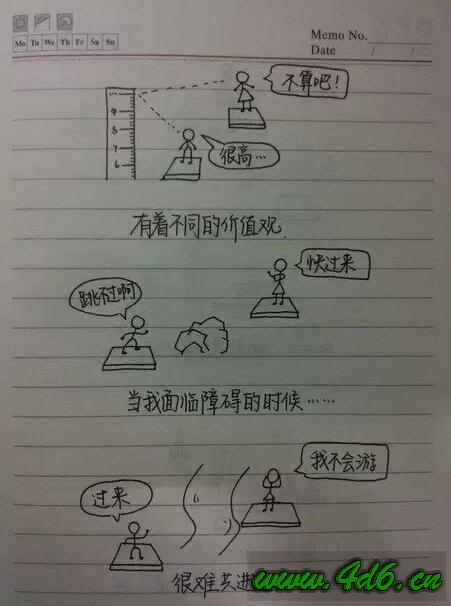 Mo Tu We Th Fr Sa Su
Memo No.
Date / /
不算吧!
9
8
7
6
很高…
有着不同的价值观.
快过来
跳不过啊
当我面临障碍的时候……
我不会游
过来
很难共进
www.4d6.cn